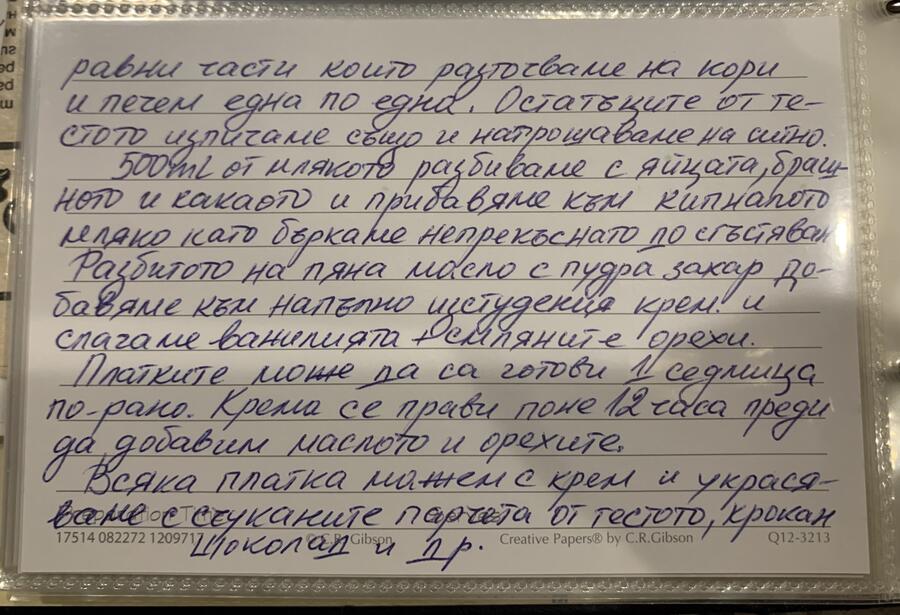 равни части които разточваме на кори
и печем една по една. Остатъците от те-
стото изпичаме също и натрошаваме на ситно.
500mL от млякото разбиваме с яйцата, браш-
ното и какаото и прибавяме към кипналото
мляко като бъркаме непрекъснато до сгъстяван
Разбитото на пяна масло с пудра захар до-
бавяме към напълно изстуденця крем. и
слагаме ванилията + смляните орехи.
Платките може да са готови 1 седмица
по-рано. Крема се прави поне 12 часа преди
да добавим маслото и орехите.
Всяка платка мажем с крем и украся-
ваме с счуканите парчета от тестото, крокан
шоколад и др.
17514 082272 120971 © C.R. Gibson Creative Papers® by C.R.Gibson Q12-3213